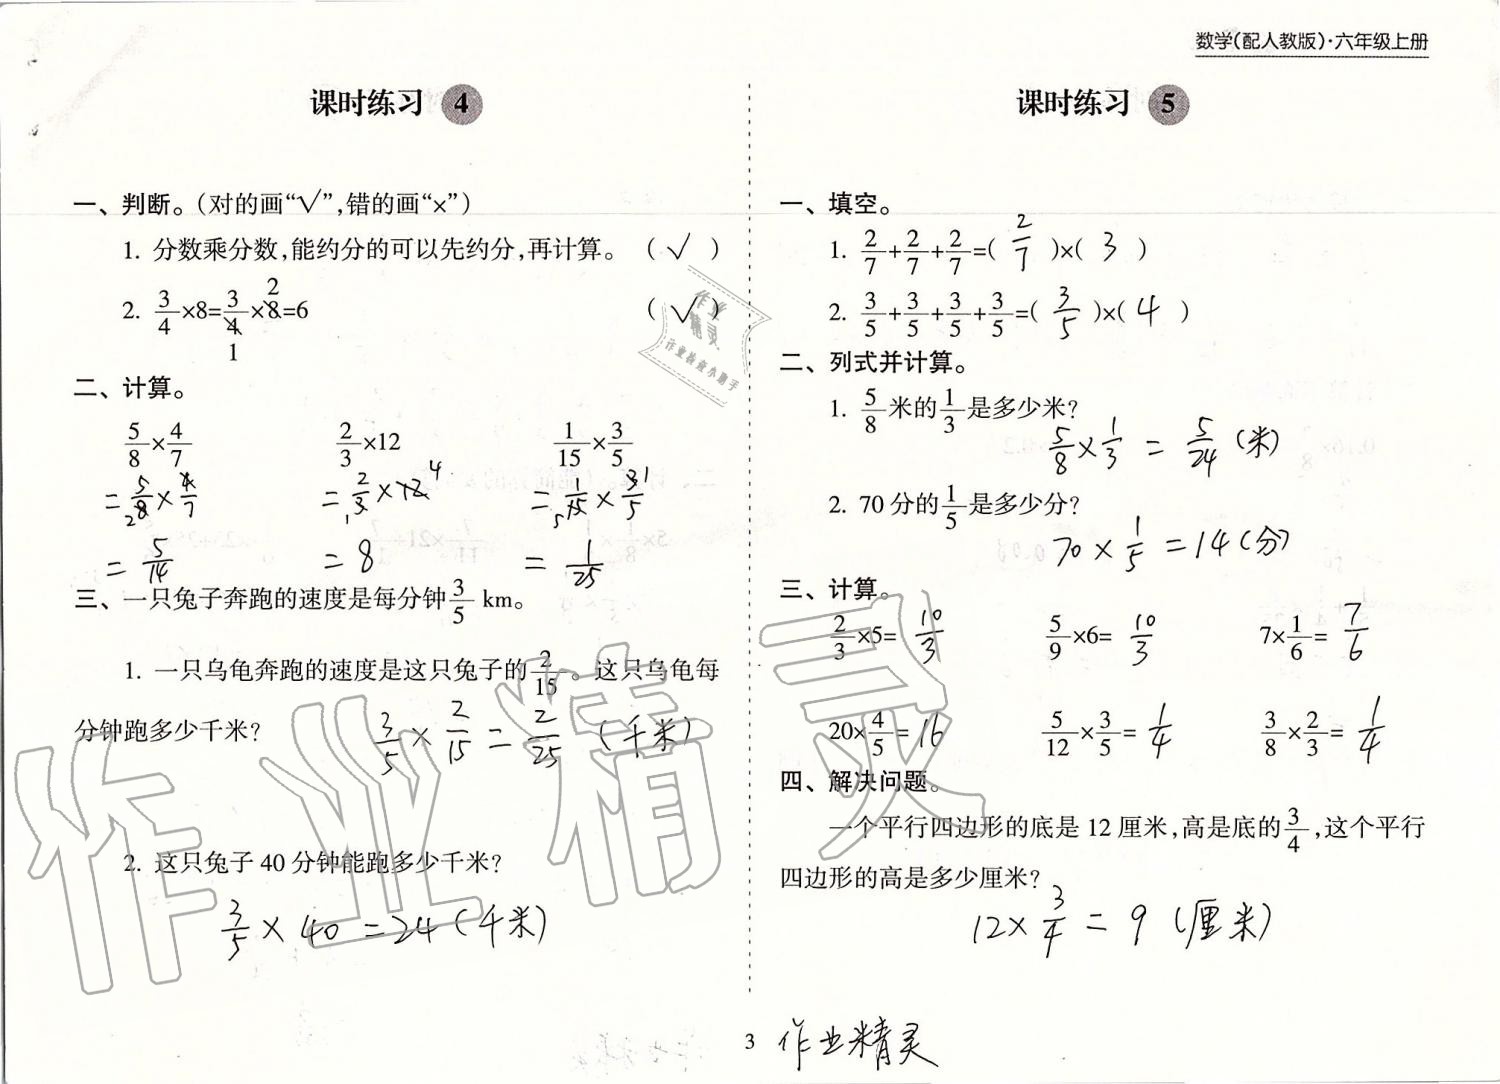 数学(配人教版)·六年级上册
课时练习 4
一、判断。(对的画“√”,错的画“×”)
1. 分数乘分数,能约分的可以先约分,再计算。 ( √ )
2. 3/4×8=3/4×8=6 ( √ )
2
1
二、计算。
5/8×4/7 2/3×12 1/15×3/5
=5/8×4/7 =2/3×12 =1/15×3/5
2 1 4 5 1
=5/14 =8 =1/25
三、一只兔子奔跑的速度是每分钟3/5 km。
1. 一只乌龟奔跑的速度是这只兔子的2/15。这只乌龟每
分钟跑多少千米?
3/5×2/15=2/25(千米)
2. 这只兔子 40 分钟能跑多少千米?
3/5×40=24(千米)
课时练习 5
一、填空。
1. 2/7+2/7+2/7=( 2/7 )×( 3 )
2. 3/5+3/5+3/5+3/5=( 3/5 )×( 4 )
二、列式并计算。
1. 5/8米的1/3是多少米?
5/8×1/3=5/24(米)
2. 70 分的1/5是多少分?
70×1/5=14(分)
三、计算。
2/3×5=10/3 5/9×6=10/3 7×1/6=7/6
20×4/5=16 5/12×3/5=1/4 3/8×2/3=1/4
四、解决问题。
一个平行四边形的底是 12 厘米,高是底的3/4,这个平行
四边形的高是多少厘米?
12×3/4=9(厘米)
3
作业精灵
作业
精灵
作业检查小助手
作业精灵